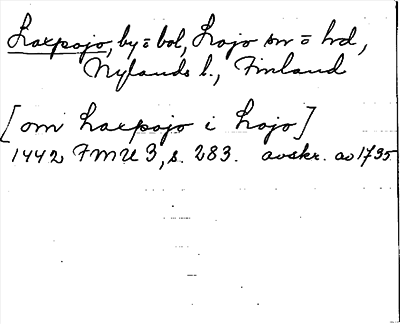 Laxpojo, by = bol, Lojo sn = hd,
Nylands l., Finland
[om Laxpojo i Lojo]
1442 FMU 3, s. 283. avskr. av 1735